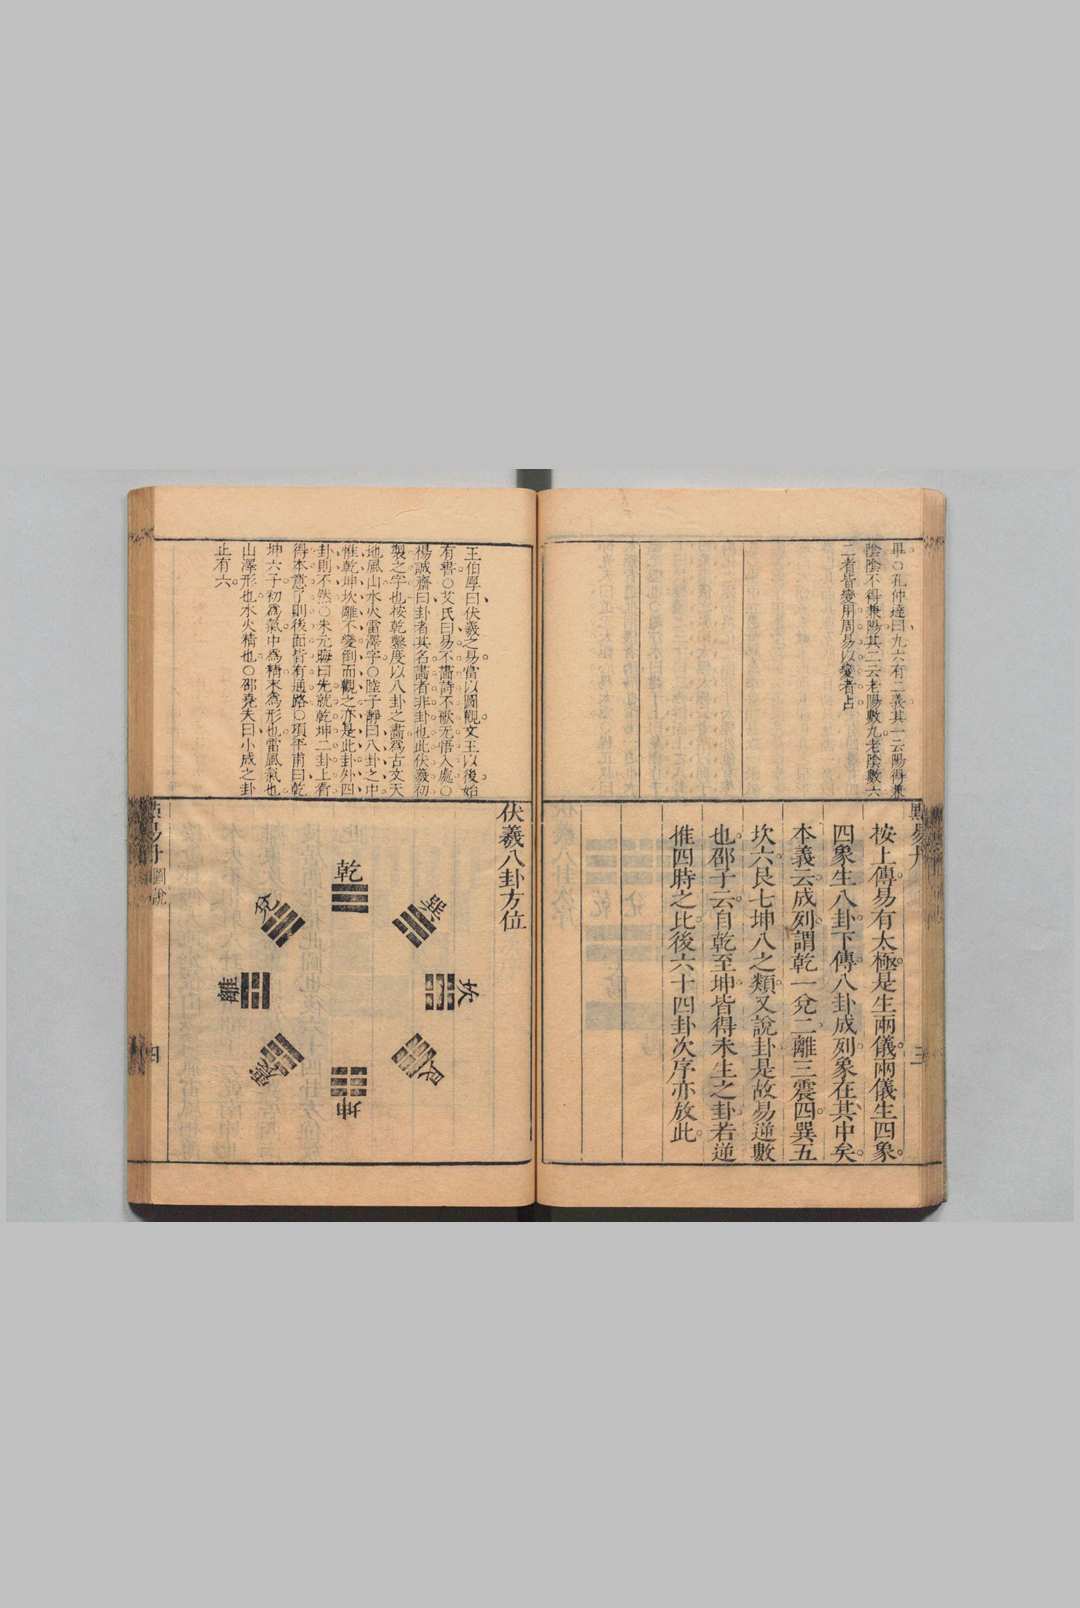 畢○孔仲達曰九六有二義其一云陽得兼
陰陰不得兼陽其二云老陽數九老陰數六
二者皆變用周易以變者占
按上傳易有太極是生兩儀兩儀生四象
四象生八卦下傳八卦成列象在其中矣
本義云成列謂乾一兌二離三震四巽五
坎六艮七坤八之類又說卦是故易逆數
也邵子云自乾至坤皆得未生之卦若逆
推四時之比後六十四卦次序亦放此
王伯厚曰伏羲之易當以圖觀文王以後始
有書○艾氏曰易不畵詩不歌无悟入處○
楊誠齋曰卦者其名畵者非卦也此伏羲初
製之字也按乾鑿度以八卦之畵爲古文天
地風山水火雷澤字○陸子靜曰八卦之中
惟乾坤坎離不變倒而觀之亦是此卦外四
卦則不然○朱元晦曰先就乾坤二卦上看
得本意了則後面皆有通路○項平甫曰乾
坤六子初爲氣中爲精末爲形也雷風氣也
山澤形也水火精也○邵堯夫曰小成之卦
止有六
伏羲八卦方位
乾
巽
坎
艮
坤
震
離
兌
圖說
四